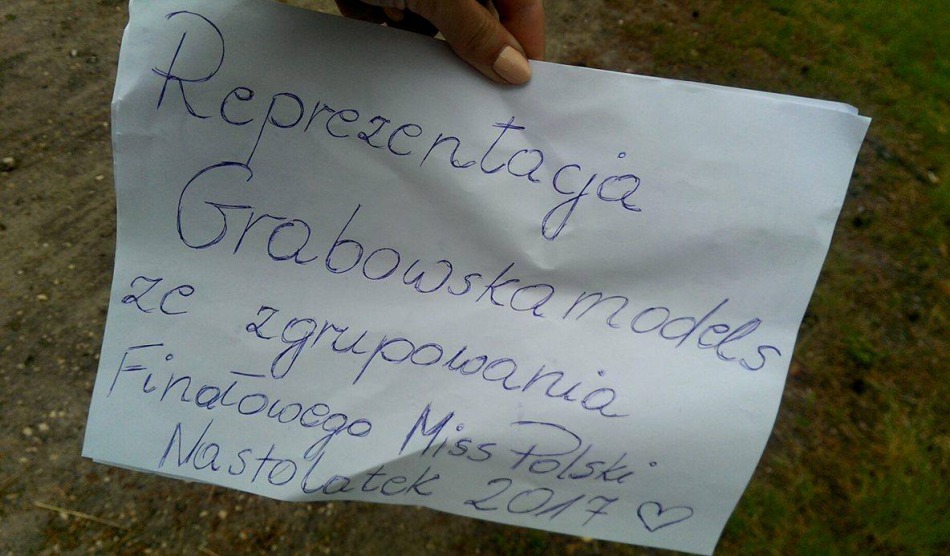 Reprezentacja
Grabowskamodels
ze zgrupowania
Finałowego Miss Polski
Nastolatek 2017 ♡